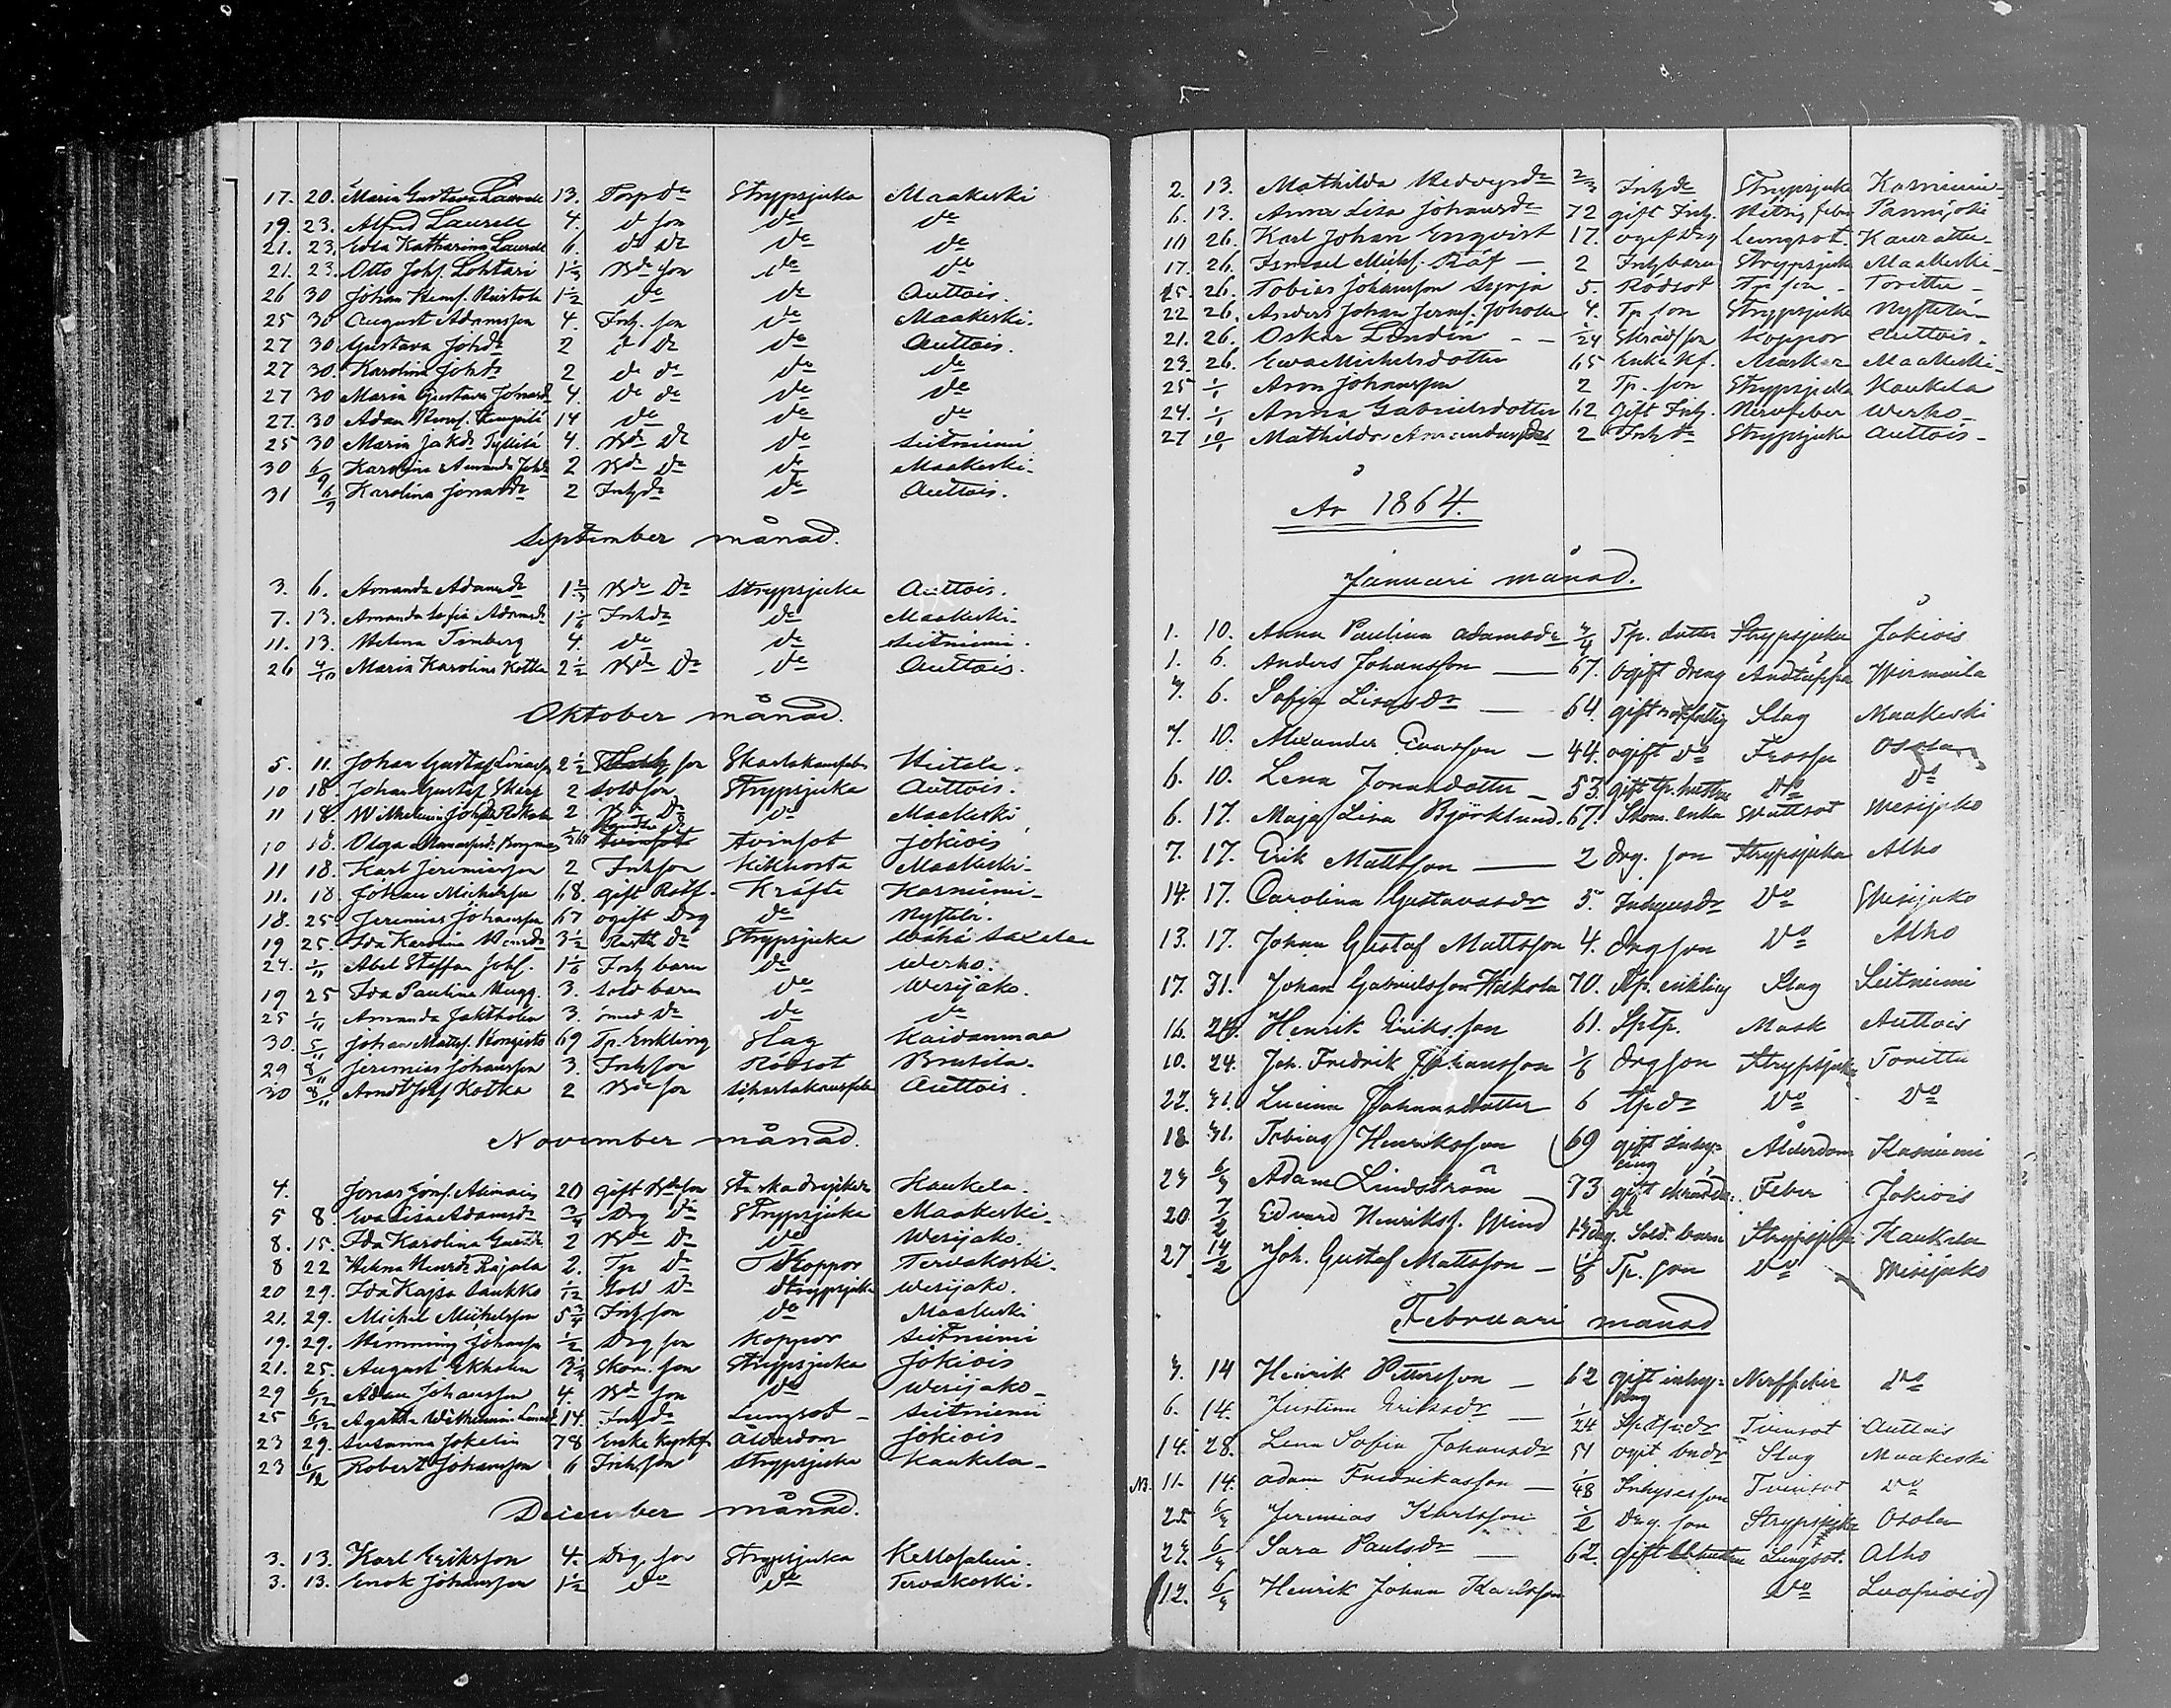 17. 20. Maria Gustava Laurell 13. Torp dr Strypsjuka Maakeski
19. 23. Alfred Laurell 4. d son do do
21. 23. Eva Katharina Laurell 6. do dr do do
21. 23. Otto Johs. Lohtari 1 1/3 Bde son do do
26 30 Johan Henrs. 1 1/2 do do Auttois.
25 30 August Adamsson 4. Inh. son do Maakeski.
27 30 Gustava Johdr 2 d dr do Auttois.
27 30. Karolina Johdr 2 do do do do
27 30 Maria Gustava Jonasd 4. do do do do
27. 30 Adam Henrs. 14 do do do
25 30 Maria Jakdr 4. Bde Dr do Seitniemi
30 6/9 Karolina Amanda Johdr 2 Bde Dr do Maakeski.
31 6/9 Karolina Jonasdr 2 Inh dr do Auttois.
September månad.
3. 6. Amanda Adamsdr 1 2/3 Bde Dr Strypsjuka Auttois.
7. 13. Amanda Sofia Adamsdr 1 1/2 Inh dr do Maakeski.
11. 13. Helena Timberg 4. do do Seitniemi.
26 4/10 Maria Karolina Kotka 2 1/2 Bde Dr do Auttois.
Oktober månad.
5. 11. Johan Gustaf 2 1/2 son Skarlakansfeber Hietala.
10 18. Johan Gustaf Skarp 2 Sold son Strypsjuka Auttois.
11 18. Wilhelmina Johsdr 2 Bde Dr do Maakeski
10 18. Olga Tvinsot Jokiois
11 18. Karl Jeremiasson 2 Inh son Kikhosta Maakeski.
11. 18 Johan Michelsson 68. gift Kräfta Kasniemi.
18. 25 Jeremias Johansson 67 ogift Drg do
19 25. Ida Karolina Henrsdr 3 1/2 Rusth Dr Strypsjuka Wähä Saxela
24. 1/11 Abel Staffan Johs. 1 1/6 Inh barn do Werho.
19 25 Ida Paulina Mugg. 3. Sold barn do Wesijako.
25 1/11 Amanda Jaktholm 3. smed Dr do do
30. 5/11 Johan Matts. 69 Tp. Enkling Slag Kaidanmaa
29 8/11 Jeremias Johansson 3. Inh son Rödsot Brusila.
30 8/11 Arndt Johs Kotka 2 Bde son Scharlakansfeber Auttois.
November månad.
4. Jonas Jons. 20 gift Bde son Kaukela.
5 8. Eva Lisa Adamsdr 3/4 Drg Dr Strypsjuka Maakeski.
8. 15. Ida Karolina 2 Bde Dr do Wesijako.
8 22 Helena Henrsdr Rajala 2. Tp Dr Koppor Tervakoski.
20 29. Ida Kajsa Saukko 1/12 Sold Dr Strypsjuka Wesijako.
21. 29. Michel Michelsson 5 3/4 Inh son do Maakeski
19. 29. Johansson 1/2 Drg son Koppor Seitniemi
21. 25. August Ekholm 3 1/2 Skom. son Strypsjuka Jokiois
29 6/12 Adam Johansson 4. Bde son do Wesijako.
25 6/12 Agatha Wilhelmina 14. Inh dr Lungsot. Seitniemi
23 29. Susanna Jokelin 78 Enka Ålderdom Jokiois
23 6/12 Robert Johansson 6 Inh son Strypsjuka Kaukela.
December månad.
3. 13. Karl Eriksson 4. Drg. son Strypsjuka Kellosalmi.
3. 13. Enok Johansson 1 1/2 do do Tervakoski.
2. 13. Mathilda Hedvigsdr 2/3 Inh dr Strypsjuka Kasniemi.
6. 13. Anna Lisa Johansdr 72 gift Inh. Hetsig feber
10 26. Karl Johan Engvist 17. ogift Drg Lungsot.
17. 26. Ismael Michs. Räf 2 Inh barn Strypsjuka Maakeski.
15. 26. Tobias Johansson 5. Rödsot Tp son Toritta.
22 26. Anders Johan Jerems. Johola 4. Tp son Strypsjuka Nystölä
21. 26. Oskar Lindén 1/24 Skräd son Koppor Auttois.
23. 26. Eva Michelsdotter 65 Enka Maskar Maakeski.
25 1/1 Aron Johansson 2 Tp. son Strypsjuka Kaukela
24. 1/1 Anna Gabrielsdotter 62 Gift Inh. Nervfeber Werho.
27 10/1 Mathilda 2 Inh dr Strypsjuka Auttois.
År 1864.
Januari månad.
1. 10. Anna Paulina Adamsdr 3/4 Tp. dotter Strypsjuka Jokiois
1. 6. Anders Johansson 67. ogift dreng Andtäppa Wirmaila
3. 6. Sofia Lisasdr 64. gift Slag Maakeski
4. 10. Alexander Evasson 44. ogift do Frossa Osola
6. 10. Lena Jonasdotter 53. gift tp. hustru do do
6. 17. Maja Lisa Björklund. 67. Skom. enka Wattsot Wesijako
7. 17. Erik Mattsson 2 drg. son Strypsjuka Alho
14. 17. Carolina Gustavasdr 5. Inhysesdr do Wesijako
13. 17. Johan Gustaf Mattsson 4. drg son do Alho
17. 31. Johan Gabrielsson 70. Tp. enkling Slag Seitniemi
16. 24. Henrik Eriksson 61. Sptp. Mask Auttois
10. 24. Joh. Fredrik Johansson 1/6 drg son Strypsjuka Toritta
22. 31. Lucina Johansdotter 6 Tp dr do do
18. 31. Tobias Henriksson 69 gift Inhysing Ålderdom Kasniemi
23 6/2 Adam Lindström 73 gift Feber Jokiois
20 7/2 Edvard Henrikss. Wind 14 dag. Sold. barn Strypsjuka Kaukela
27 14/2 Joh. Gustaf Mattsson 1/8 Tp. son do Wesijako
Februari månad
3. 14 Henrik Pettersson 62 gift inhysing Nerffeber do
6. 14. Justina Eriksdr 1/24 Tvinsot Auttois
14. 28. Lena Sofia Johansdr 51 ogift bndr Slag Maakeski
NB. 11. 14. Adam Fredrikasson 1/48 Inhysesson Tvinsot do
25. 6/3 Jeremias Karlsson 1/2 Drg. son Strypsjuka Osola
22. 6/3 Sara Paulsdr 62. gift Lungsot. Alho
(12. 6/3 Henrik Johan Karlsson do Luopiois)